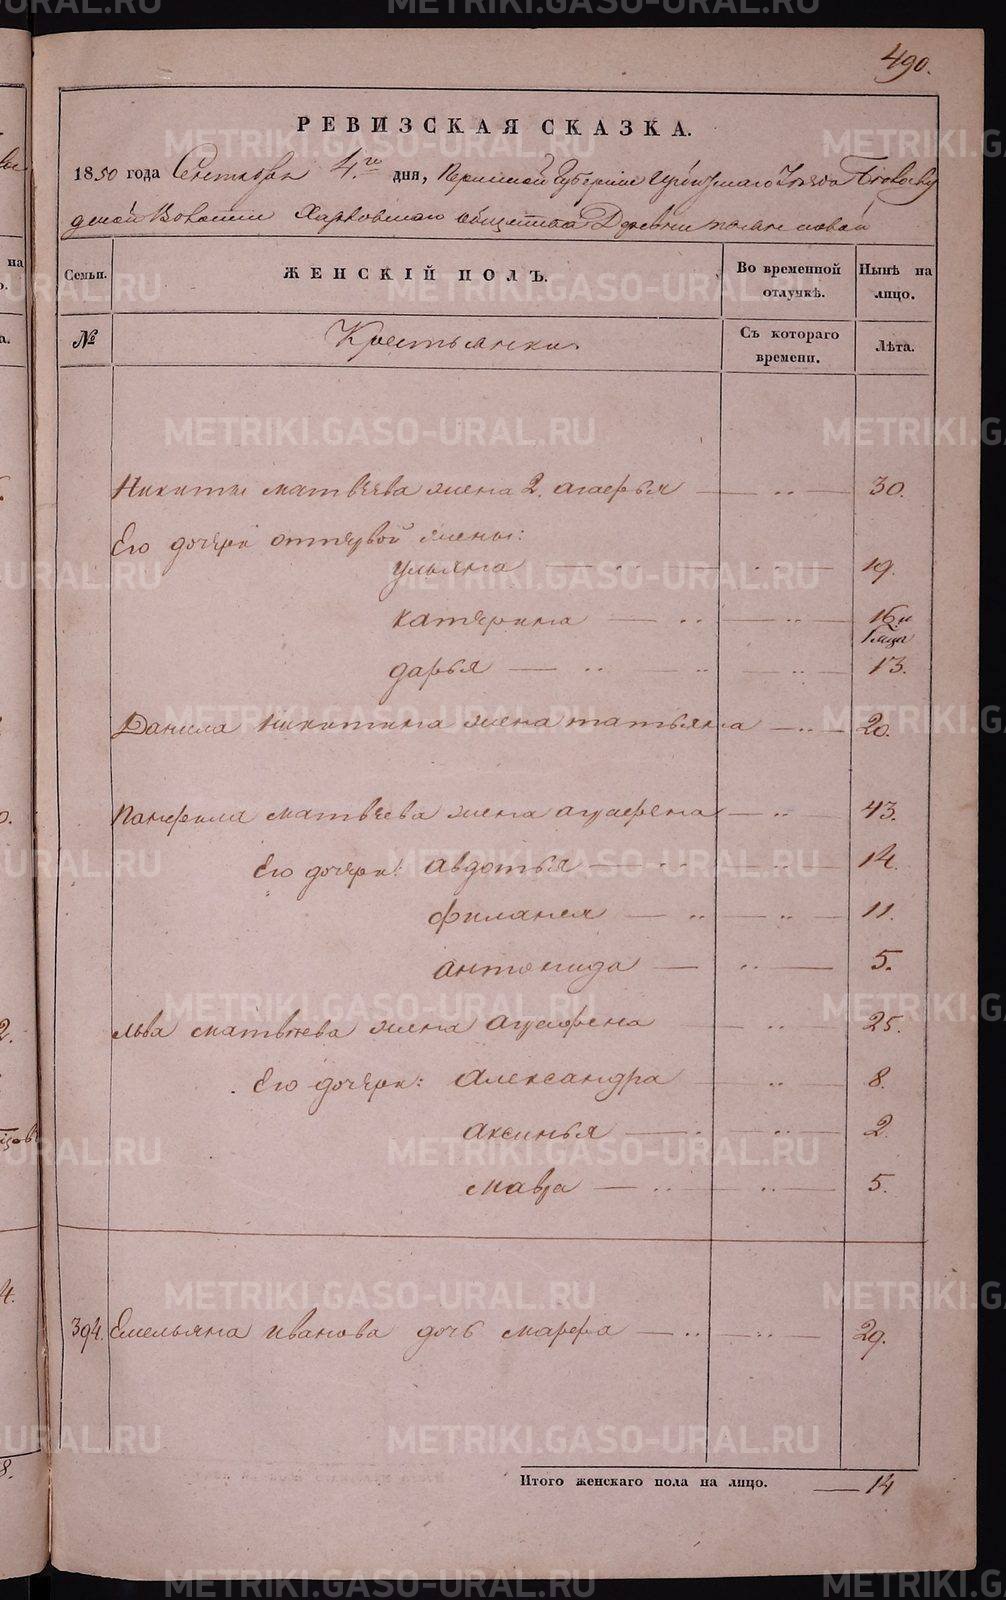 METRIKI.GASO-URAL.RU
490.
РЕВИЗСКАЯ СКАЗКА.
1850 года Сентября 4.го дня, Пермской Губернии Ирбитскаго Уезда
Волости Харловскаго общества Деревни
Семьи. ЖЕНСКІЙ ПОЛЪ. Во временной отлучкѣ. Нынѣ на лицо.
№ Крестьянки. Съ котораго времени. Лѣта.
Никиты Матвѣева жена 2. Агаерья — „ — 30.
Его дочери отпервой жены:
Ульяна — „ — „ — 19.
Катерина — „ — „ — 16 и
1 мца
Дарья — „ — „ — „ — 13.
Данила Никитина жена Татьяна — „ — 20.
Панфила Матвѣева жена Агаерена — „ — 43.
Его дочери: Авдотья — „ — „ — 14.
Филанея — „ — „ — 11.
Антонида — „ — 5.
Льва Матвѣева жена Агаерена „ 25.
Его дочери: Александра — „ — 8.
Аксинья — „ — „ — 2.
Мавра — „ — „ — 5.
394. Емельяна Иванова дочь Марфа — „ — „ 29.
Итого женскаго пола на лицо. — 14